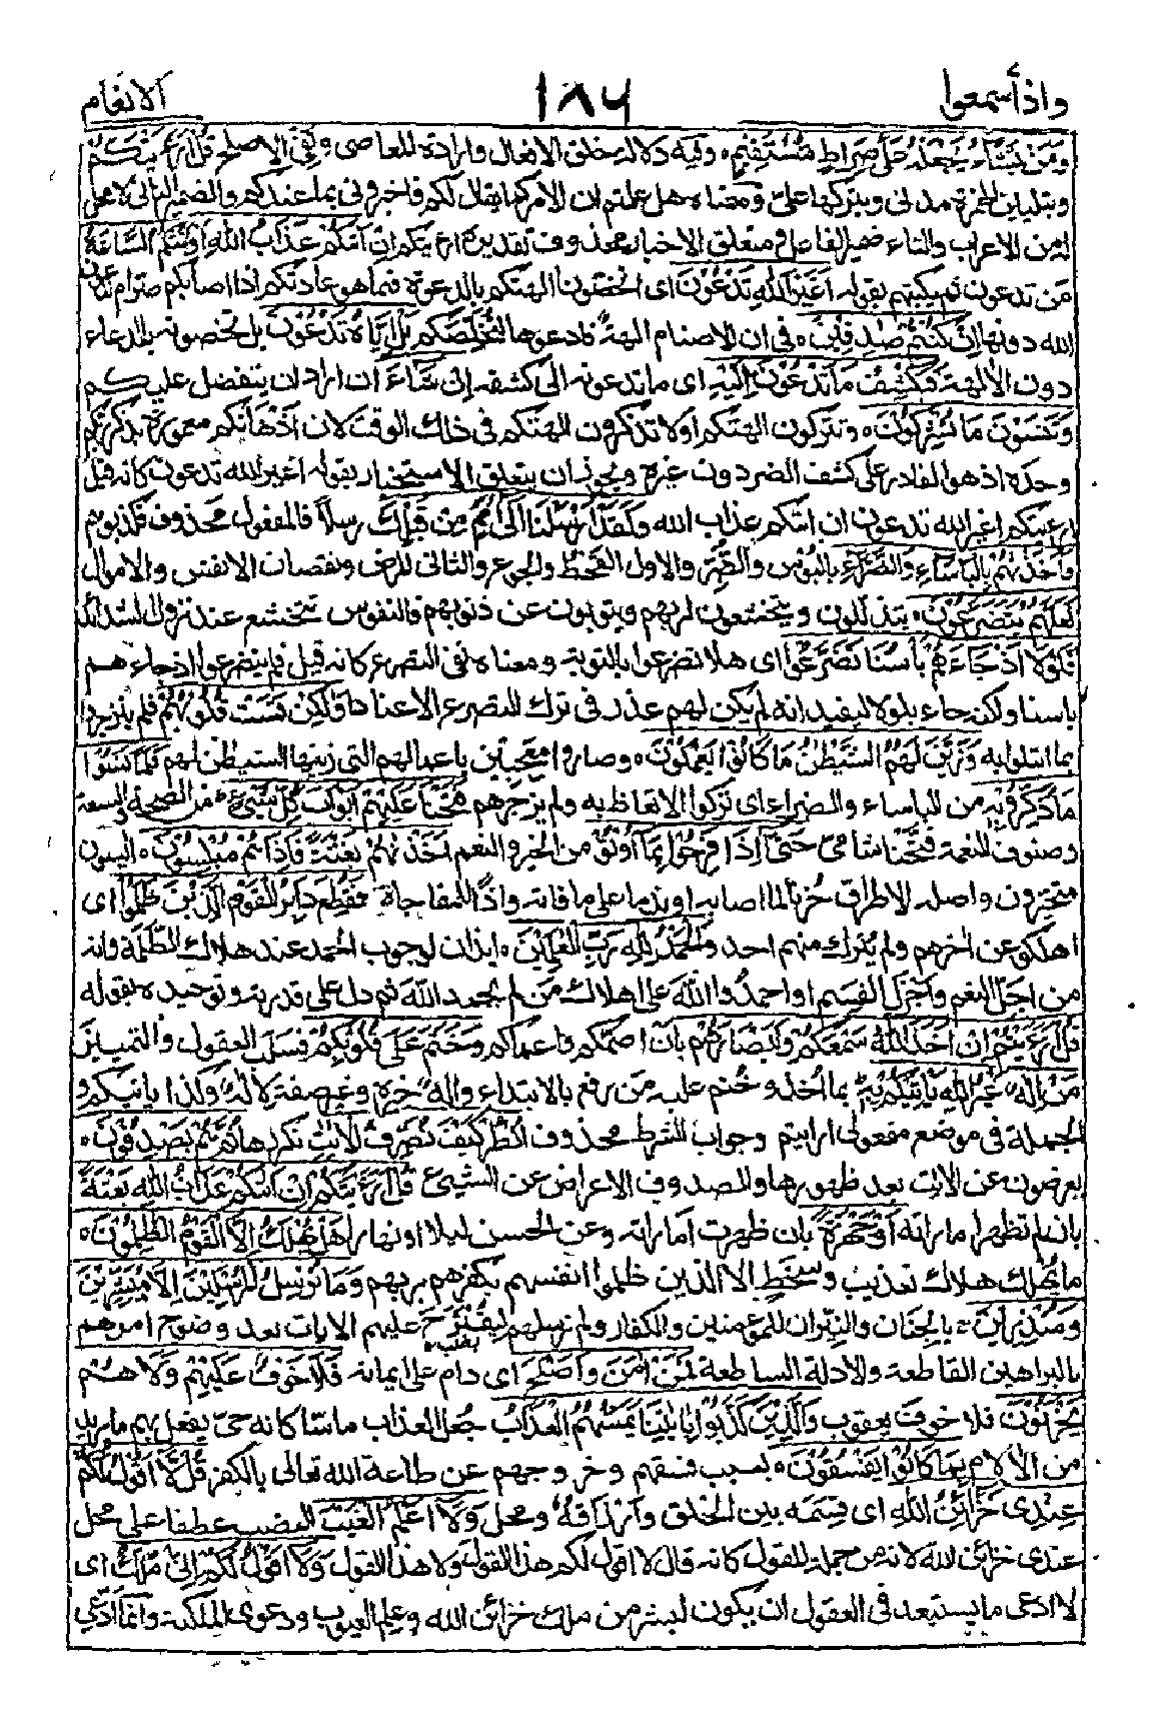 واذا سمعوا ١٨٦ الانعام
وَمَنْ يَّشَاْ يَجْعَلْهُ عَلٰى صِرَاطٍ مُّسْتَقِيْمٍ ه وفيه دلالة خلق الافعال وارادة المعاصى ونفى الاصلح قُلْ اَرَءَيْتَكُمْ
وبتليين الهمزة مدنى وبتركها علىّ ومعناه هل علمتم ان الامر كما يقال لكم فاخبرونى بما عندكم والضمير الثانى لا محل
له من الاعراب والتاء ضمير الفاعل ومتعلق الاخبار محذوف تقديره ارءيتكم اِنْ اَتٰىكُمْ عَذَابُ اللّٰهِ اَوْ اَتَتْكُمُ السَّاعَةُ
مَن تدعون ثم بكتهم بقوله اَغَيْرَ اللّٰهِ تَدْعُوْنَ اى اتخصّون الهتكم بالدعوة فيما هو عادتكم اذا اصابكم ضر ام تدعون
الله دونها اِنْ كُنْتُمْ صٰدِقِيْنَ ه فى ان الاصنام الهة فادعوها لتخلصكم بَلْ اِيَّاهُ تَدْعُوْنَ بل تخصونه بالدعاء
دون الالهة فَيَكْشِفُ مَا تَدْعُوْنَ اِلَيْهِ اى ما تدعونه الى كشفه اِنْ شَآءَ ان اراد ان يتفضل عليكم
وَتَنْسَوْنَ مَا تُشْرِكُوْنَ ه وتتركون الهتكم او لا تذكرون الهتكم فى ذلك الوقت لان اذهانكم مغمورة بذكر ربكم
وحده اذ هو القادر على كشف الضر دون غيره ويجوز ان يتعلق الاستخبار بقوله اغير الله تدعون كانه قيل
ارءيتكم اغير الله تدعون ان اتكم عذاب الله وَلَقَدْ اَرْسَلْنَا اِلٰٓى اُمَمٍ مِّنْ قَبْلِكَ رسلاً فالمفعول محذوف فكذبوهم
فَاَخَذْنٰهُمْ بِالْبَاْسَآءِ وَالضَّرَّآءِ بالبؤس والضّر والاول القحط والجوع والثانى المرض ونقصان الانفس والاموال
لَعَلَّهُمْ يَتَضَرَّعُوْنَ ه يتذللون ويتخشعون لربهم ويتوبون عن ذنوبهم فالنفوس تتخشع عند نزول الشدائد
فَلَوْلَا اِذْ جَآءَهُمْ بَاْسُنَا تَضَرَّعُوْا اى هلا تضرعوا بالتوبة ومعناه نفى التضرع كانه قيل فلم يتضرعوا اذ جاءهم
باسنا ولكنه جاء بلولا ليفيد انه لم يكن لهم عذر فى ترك التضرع الا عنادهم وَلٰكِنْ قَسَتْ قُلُوْبُهُمْ فلم ينزجروا
بما ابتلوا به وَزَيَّنَ لَهُمُ الشَّيْطٰنُ مَا كَانُوْا يَعْمَلُوْنَ ه وصاروا معجبين باعمالهم التى زينها الشيطن لهم فَلَمَّا نَسُوْا
مَا ذُكِّرُوْا بِهٖ من الباساء والضراء اى تركوا الاتعاظ به ولم يزجرهم فَتَحْنَا عَلَيْهِمْ اَبْوَابَ كُلِّ شَيْءٍ من الصحة والسعة
وصنوف النعمة فتّحنا شامى حَتّٰى اِذَا فَرِحُوْا بِمَا اُوْتُوْا من الخير والنعم اَخَذْنٰهُمْ بَغْتَةً فَاِذَا هُمْ مُّبْلِسُوْنَ ه ايسون
متحيرون واصله الاطراق حُزنًا لما اصابه او ندما على ما فاته واذا للمفاجاة فَقُطِعَ دَابِرُ الْقَوْمِ الَّذِيْنَ ظَلَمُوْا اى
اهلكوا عن اخرهم ولم يُترك منهم احد وَالْحَمْدُ لِلّٰهِ رَبِّ الْعٰلَمِيْنَ ه ايذان لوجوب الحمد عند هلاك الظلمة وانه
من اجلّ النعم واجزل القسم او احمدوا الله على اهلاك من لم يحمد الله ثم دل على قدرته وتوحيده بقوله
قُلْ اَرَءَيْتُمْ اِنْ اَخَذَ اللّٰهُ سَمْعَكُمْ وَاَبْصَارَكُمْ بان اصمّكم واعماكم وَخَتَمَ عَلٰى قُلُوْبِكُمْ فسلب العقول والتمييز
مَّنْ اِلٰهٌ غَيْرُ اللّٰهِ يَاْتِيْكُمْ بِهٖ بما اُخذ وخُتم عليه مَن رفع بالابتداء واله خبره وغير صفة لاله وكذا ياتيكم و
الجملة فى موضع مفعولى ارايتم وجواب الشرط محذوف اُنْظُرْ كَيْفَ نُصَرِّفُ الْاٰيٰتِ نكررها ثُمَّ هُمْ يَصْدِفُوْنَ ه
يعرضون عن الايٰت بعد ظهورها والصدوف الاعراض عن الشيئ قُلْ اَرَءَيْتَكُمْ اِنْ اَتٰىكُمْ عَذَابُ اللّٰهِ بَغْتَةً
بان لم تظهر اماراته اَوْ جَهْرَةً بان ظهرت اماراته وعن الحسن ليلا او نهارا هَلْ يُهْلَكُ اِلَّا الْقَوْمُ الظّٰلِمُوْنَ ه
ما يهلك هلاك تعذيب وسخط الا الذين ظلموا انفسهم بكفرهم بربهم وَمَا نُرْسِلُ الْمُرْسَلِيْنَ اِلَّا مُبَشِّرِيْنَ
وَمُنْذِرِيْنَ ه بالجنان والنيران للمؤمنين والكفار ولم نرسلهم ليقترح عليهم الايات بعد وضوح امرهم
بالبراهين القاطعة والادلة الساطعة فَمَنْ اٰمَنَ وَاَصْلَحَ اى دام على ايمانه فَلَا خَوْفٌ عَلَيْهِمْ وَلَا هُمْ
يَحْزَنُوْنَ فلا خوفَ يعقوب وَالَّذِيْنَ كَذَّبُوْا بِاٰيٰتِنَا يَمَسُّهُمُ الْعَذَابُ جُعل العذاب ماسّا كانه حىّ يفعل بهم ما يريد
من الالام بِمَا كَانُوْا يَفْسُقُوْنَ ه بسبب فسقهم وخروجهم عن طاعة الله تعالى بالكفر قُلْ لَّا اَقُوْلُ لَكُمْ
عِنْدِىْ خَزَآئِنُ اللّٰهِ اى قِسَمَه بين الخلق وارزاقه ومحل وَلَا اَعْلَمُ الْغَيْبَ النصب عطفا على محل
عندى خزائن الله لانه من جملة المقول كانه قال لا اقول لكم هذا القول ولا هذا القول وَلَا اَقُوْلُ لَكُمْ اِنِّىْ مَلَكٌ اى
لا ادعى ما يستبعد فى العقول ان يكون لبشر من ملك خزائن الله وعلم الغيوب ودعوى الملكية وانما ادّعى